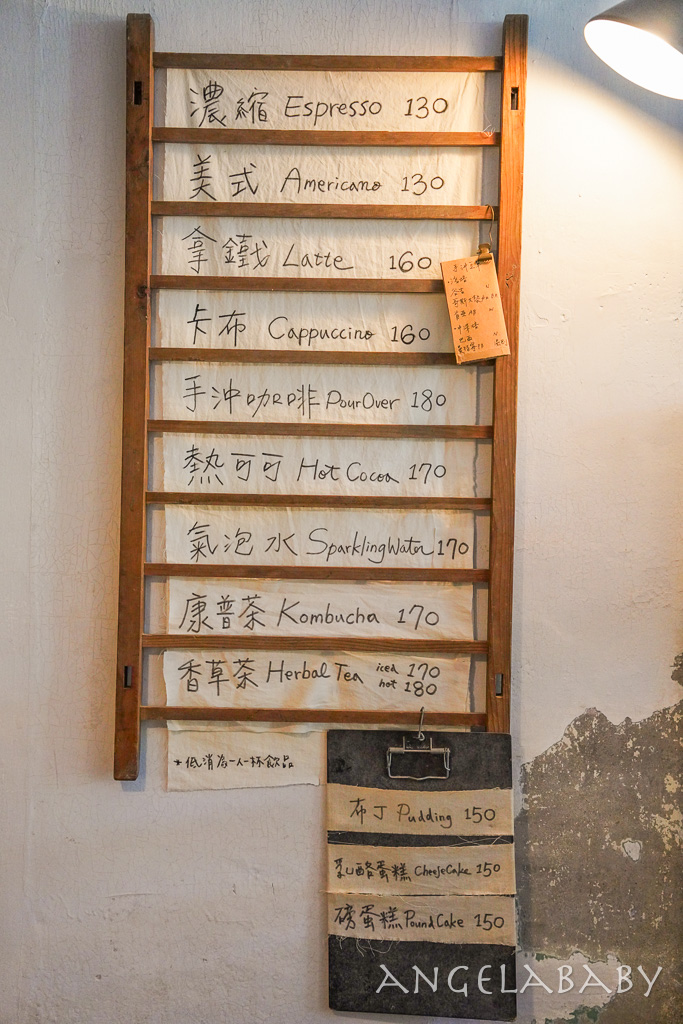 濃縮 Espresso 130
美式 Americano 130
拿鐵 Latte 160
卡布 Cappuccino 160
手沖咖啡 PourOver 180
熱可可 Hot Cocoa 170
氣泡水 SparklingWater 170
康普茶 Kombucha 170
香草茶 Herbal Tea iced 170
hot 180
*低消為一人一杯飲品
布丁 Pudding 150
乳酪蛋糕 CheeseCake 150
磅蛋糕 PoundCake 150
ANGELABABY